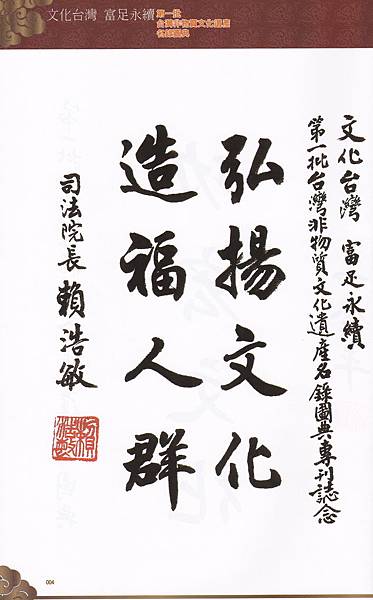 文化台灣 富足永續
第一批
台灣非物質文化遺產
名錄圖典
文化台灣 富足永續
第一批台灣非物質文化遺產名錄圖典專刊誌念
弘揚文化
造福人群
司法院長 賴浩敏
賴浩敏
004